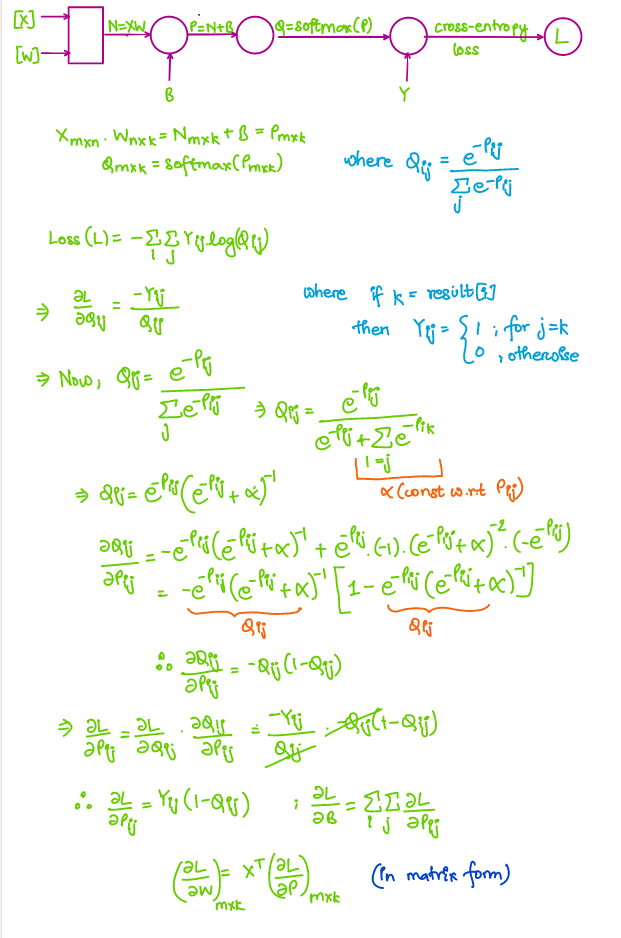 [X] N=XW P=N+B Q=softmax(P) cross-entropy loss L
[W]
B Y
X_{mxn} . W_{nxk} = N_{mxk} + B = P_{mxk}
Q_{mxk} = softmax(P_{mxk})
where Q_{ij} = e^{-P_{ij}} / Σ_j e^{-P_{ij}}
Loss (L) = -Σ_i Σ_j Y_{ij}.log(Q_{ij})
⇒ ∂L/∂Q_{ij} = -Y_{ij}/Q_{ij}
where if k = result[i]
then Y_{ij} = { 1 ; for j=k
0 , otherwise
⇒ Now, Q_{ij} = e^{-P_{ij}} / Σ_j e^{-P_{ij}} ⇒ Q_{ij} = e^{-P_{ij}} / (e^{-P_{ij}} + Σ_{1=j} e^{-P_{ik}})
⇒ Q_{ij} = e^{-P_{ij}} (e^{-P_{ij}} + α)^{-1}
α (const w.r.t P_{ij})
∂Q_{ij}/∂P_{ij} = -e^{-P_{ij}} (e^{-P_{ij}} + α)^{-1} + e^{-P_{ij}} . (-1) . (e^{-P_{ij}} + α)^{-2} . (-e^{-P_{ij}})
= -e^{-P_{ij}} (e^{-P_{ij}} + α)^{-1} [1 - e^{-P_{ij}} (e^{-P_{ij}} + α)^{-1}]
Q_{ij} Q_{ij}
∴ ∂Q_{ij}/∂P_{ij} = -Q_{ij} (1-Q_{ij})
⇒ ∂L/∂P_{ij} = ∂L/∂Q_{ij} . ∂Q_{ij}/∂P_{ij} = -Y_{ij}/Q_{ij} . -Q_{ij}(1-Q_{ij})
∴ ∂L/∂P_{ij} = Y_{ij} (1-Q_{ij}) ; ∂L/∂B = Σ_i Σ_j ∂L/∂P_{ij}
(∂L/∂W)_{mxk} = X^T (∂L/∂P)_{mxk} (in matrix form)